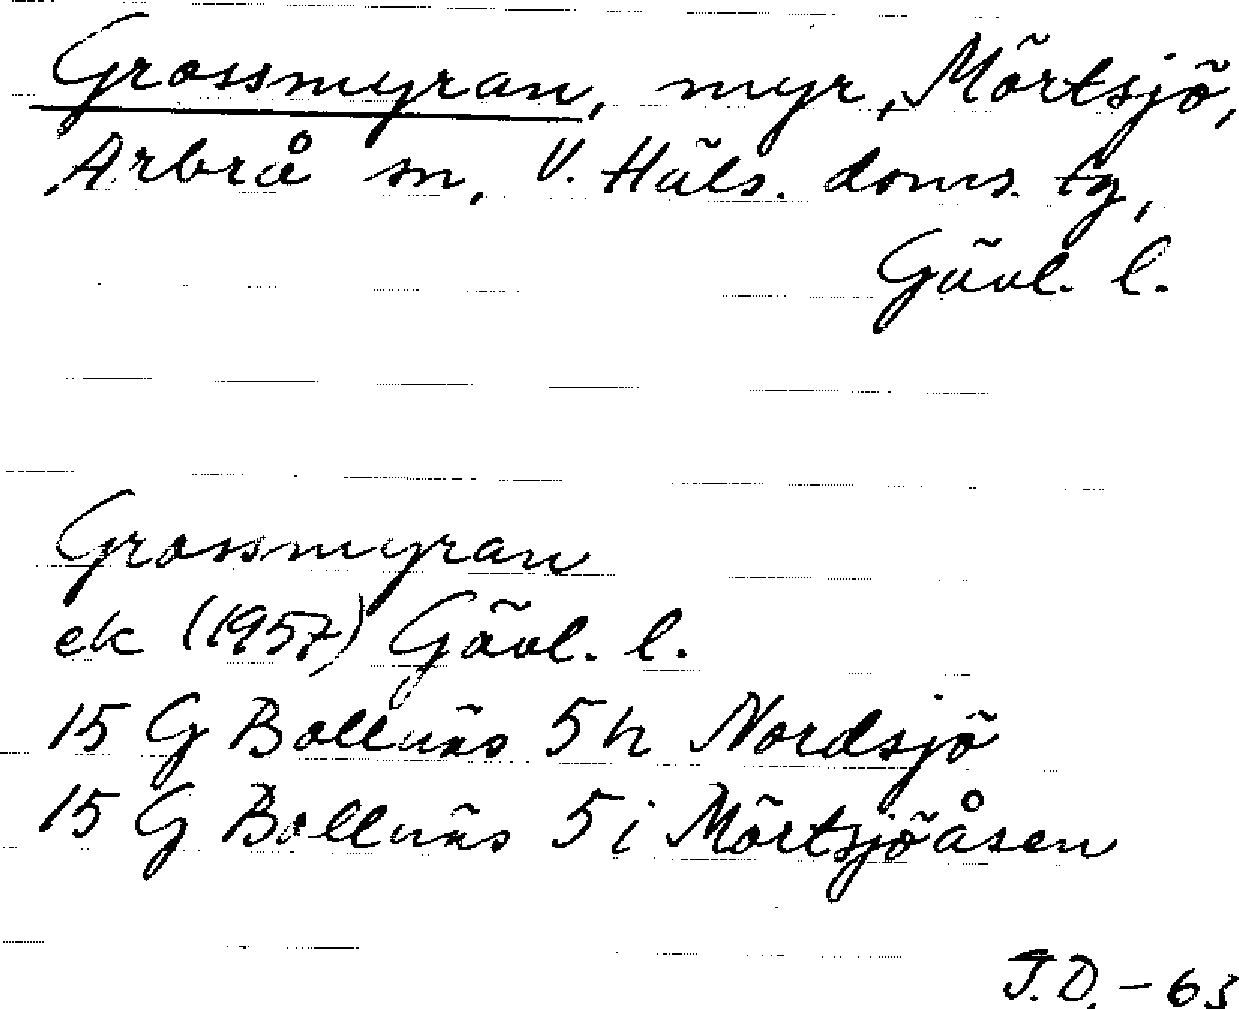 Grossmyran, myr, Mörtsjö,
Arbrå sn, V. Häls. doms. tg,
Gävl. l.
Grossmyran
ek (1957) Gävl. l.
15 G Bollnäs 5 h Nordsjö
15 G Bollnäs 5 i Mörtsjöåsen
J.D. - 63